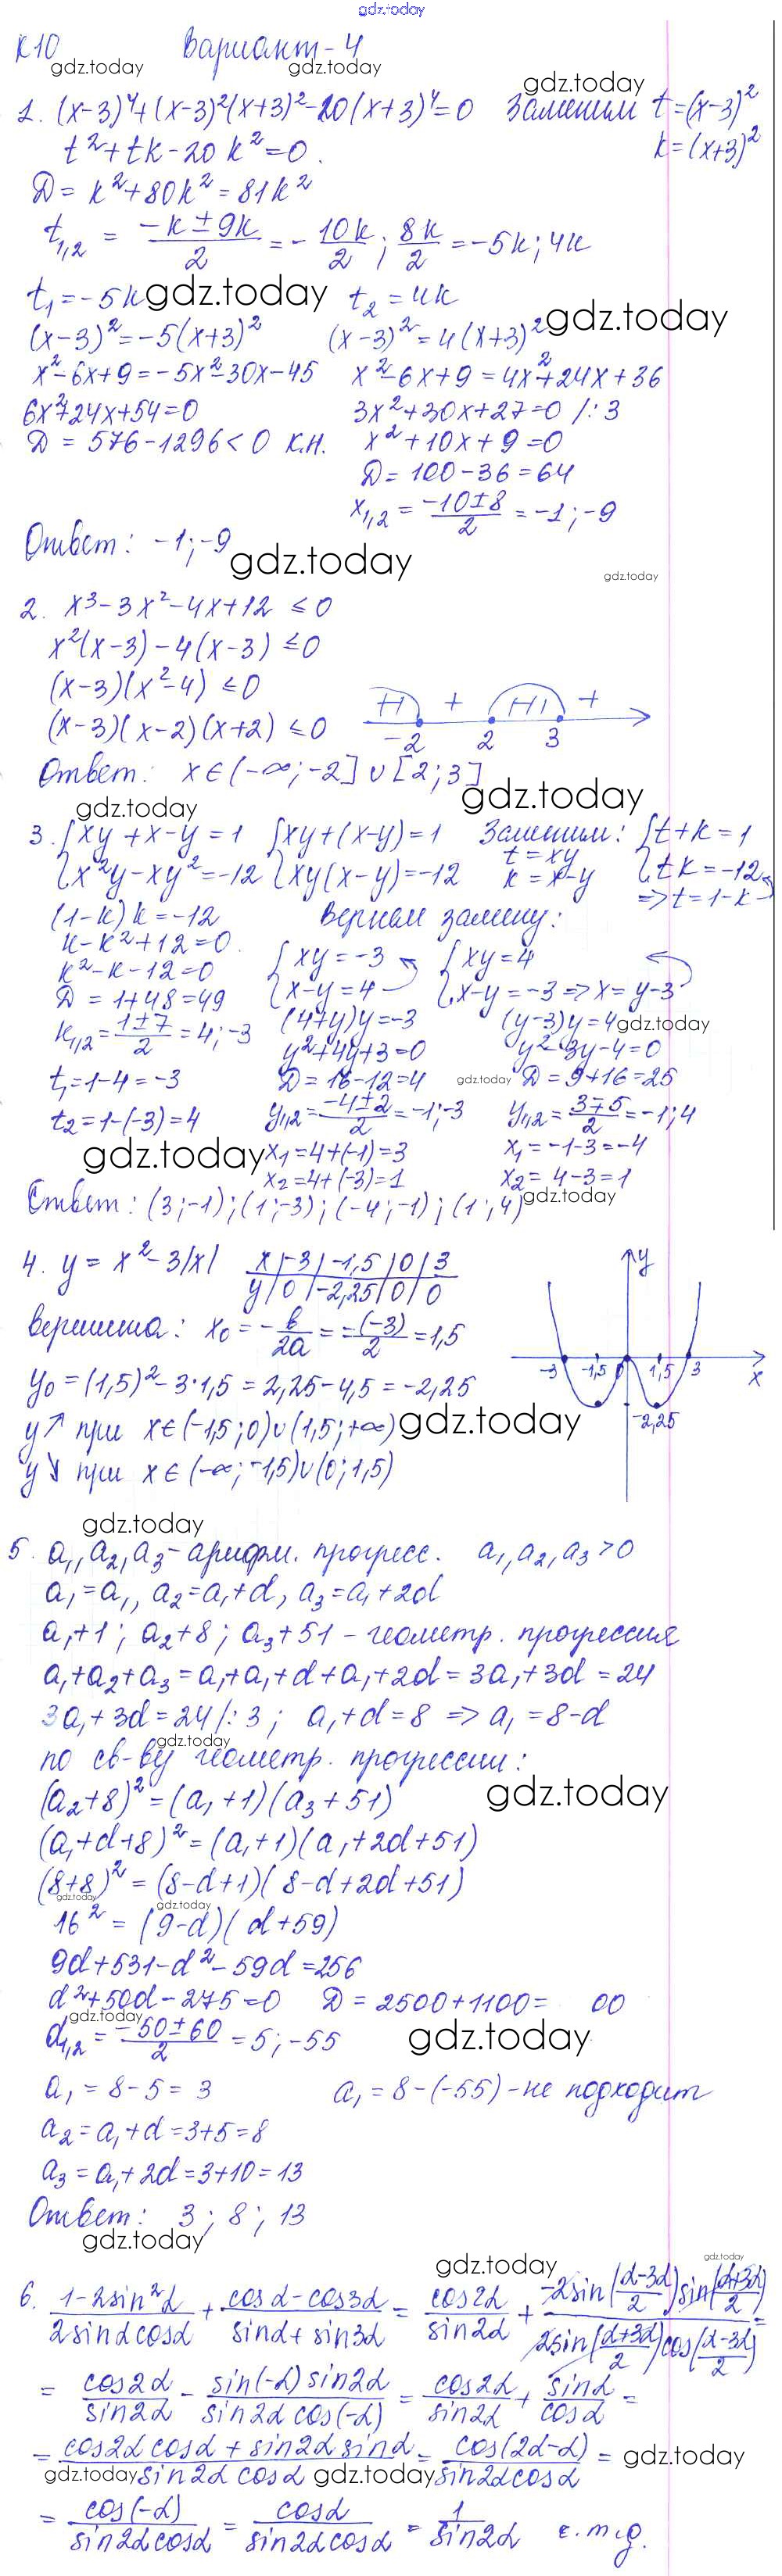 gdz.today
К10 Вариант-4
gdz.today gdz.today gdz.today
1. (x-3)⁴+(x-3)²(x+3)²-20(x+3)⁴=0 Заменим t=(x-3)²
t²+tk-20k²=0. k=(x+3)²
Д=k²+80k²=81k²
t₁,₂ = (-k±9k)/2 = -10k/2; 8k/2 = -5k; 4k
t₁=-5k gdz.today t₂=4k gdz.today
(x-3)²=-5(x+3)² (x-3)²=4(x+3)²
x²-6x+9=-5x²-30x-45 x²-6x+9=4x²+24x+36
6x²+24x+54=0 3x²+30x+27=0 /:3
Д=576-1296<0 к.н. x²+10x+9=0
Д=100-36=64
x₁,₂ = (-10±8)/2 = -1; -9
Ответ: -1; -9 gdz.today gdz.today
2. x³-3x²-4x+12 ≤0
x²(x-3)-4(x-3) ≤0
(x-3)(x²-4) ≤0
(x-3)(x-2)(x+2) ≤0 + +
-2 2 3
Ответ: x∈(-∞;-2]∪[2;3]
gdz.today gdz.today
3. {xy+x-y=1 {xy+(x-y)=1 Заменим: {t+k=1
{x²y-xy²=-12 {xy(x-y)=-12 t=xy k=x-y {tk=-12
=>t=1-k
(1-k)k=-12 Вернем замену:
k-k²+12=0.
k²-k-12=0 {xy=-3 {xy=4
Д=1+48=49 {x-y=4 {x-y=-3 => x=y-3
k₁,₂=(1±7)/2=4;-3 (4+y)y=-3 (y-3)y=4 gdz.today
y²+4y+3=0 y²-3y-4=0
t₁=1-4=-3 Д=16-12=4 gdz.today Д=9+16=25
t₂=1-(-3)=4 y₁,₂=(-4±2)/2=-1;-3 y₁,₂=(3∓5)/2=-1;4
gdz.today x₁=4+(-1)=3 x₁=-1-3=-4
x₂=4+(-3)=1 x₂=4-3=1
Ответ: (3;-1);(1;-3);(-4;-1);(1;4) gdz.today
4. y=x²-3|x| x|-3|-1,5|0|3 y
y|0|-2,25|0|0
вершина: x₀=-b/2a=-(-3)/2=1,5
-3 -1,5 0 1,5 3 x
y₀=(1,5)²-3·1,5=2,25-4,5=-2,25
-2,25
y↗ при x∈(-1,5;0)∪(1,5;+∞) gdz.today
y↘ при x∈(-∞;-1,5)∪(0;1,5)
gdz.today
5. a₁,a₂,a₃-арифм. прогресс. a₁,a₂,a₃>0
a₁=a₁, a₂=a₁+d, a₃=a₁+2d
a₁+1; a₂+8; a₃+51 - геометр. прогрессия
a₁+a₂+a₃=a₁+a₁+d+a₁+2d=3a₁+3d=24
3a₁+3d=24 /:3; a₁+d=8 => a₁=8-d
gdz.today
по св-ву геометр. прогрессии:
(a₂+8)²=(a₁+1)(a₃+51) gdz.today
(a₁+d+8)²=(a₁+1)(a₁+2d+51)
(8+8)²=(8-d+1)(8-d+2d+51)
gdz.today gdz.today
16²=(9-d)(d+59)
9d+531-d²-59d=256
d²+50d-275=0 Д=2500+1100= 00
gdz.today
d₁,₂=(-50±60)/2=5;-55 gdz.today
a₁=8-5=3 a₁=8-(-55)-не подходит
a₂=a₁+d=3+5=8
a₃=a₁+2d=3+10=13
Ответ: 3; 8; 13
gdz.today gdz.today gdz.today
6. (1-2sin²α)/(2sinαcosα) + (cosα-cos3α)/(sinα+sin3α) = cos2α/sin2α + (-2sin((α-3α)/2)sin((α+3α)/2))/(2sin((α+3α)/2)cos((α-3α)/2)) =
= cos2α/sin2α - (sin(-α)sin2α)/(sin2αcos(-α)) = cos2α/sin2α + sinα/cosα =
= (cos2αcosα+sin2αsinα)/(sin2αcosα) = cos(2α-α)/(sin2αcosα) = gdz.today
gdz.today gdz.today
= cos(-α)/(sin2αcosα) = cosα/(sin2αcosα) = 1/sin2α ч.т.д.